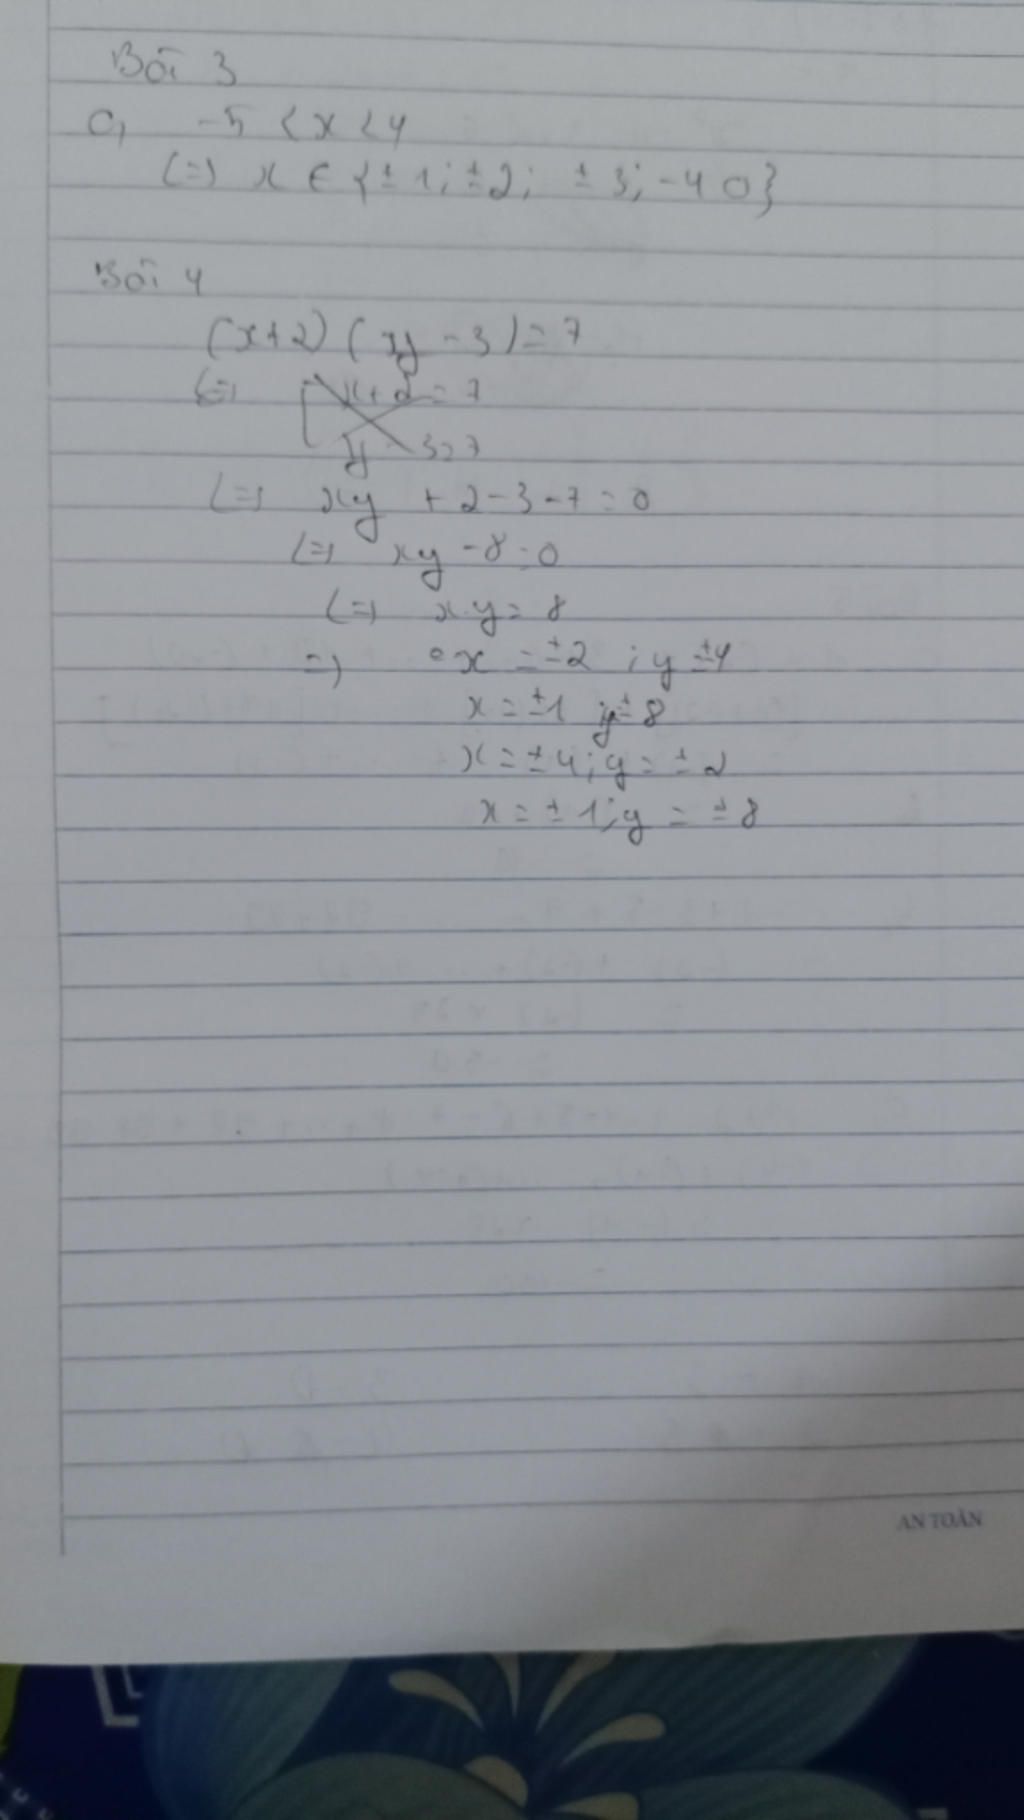 Bài 3
a, -5 < x < 4
(=) x ∈ {±1; ±2; ±3; -4 0}
Bài 4
(x+2) (xy - 3) = 7
(=) x+2=7
y 3=7
(=) xy + 2-3-7=0
(=) xy -8=0
(=) x.y= 8
=) x = ±2 ; y ±4
x = ±1 y± 8
x = ±4; y= ±2
x = ±1; y = ±8
AN TOÀN